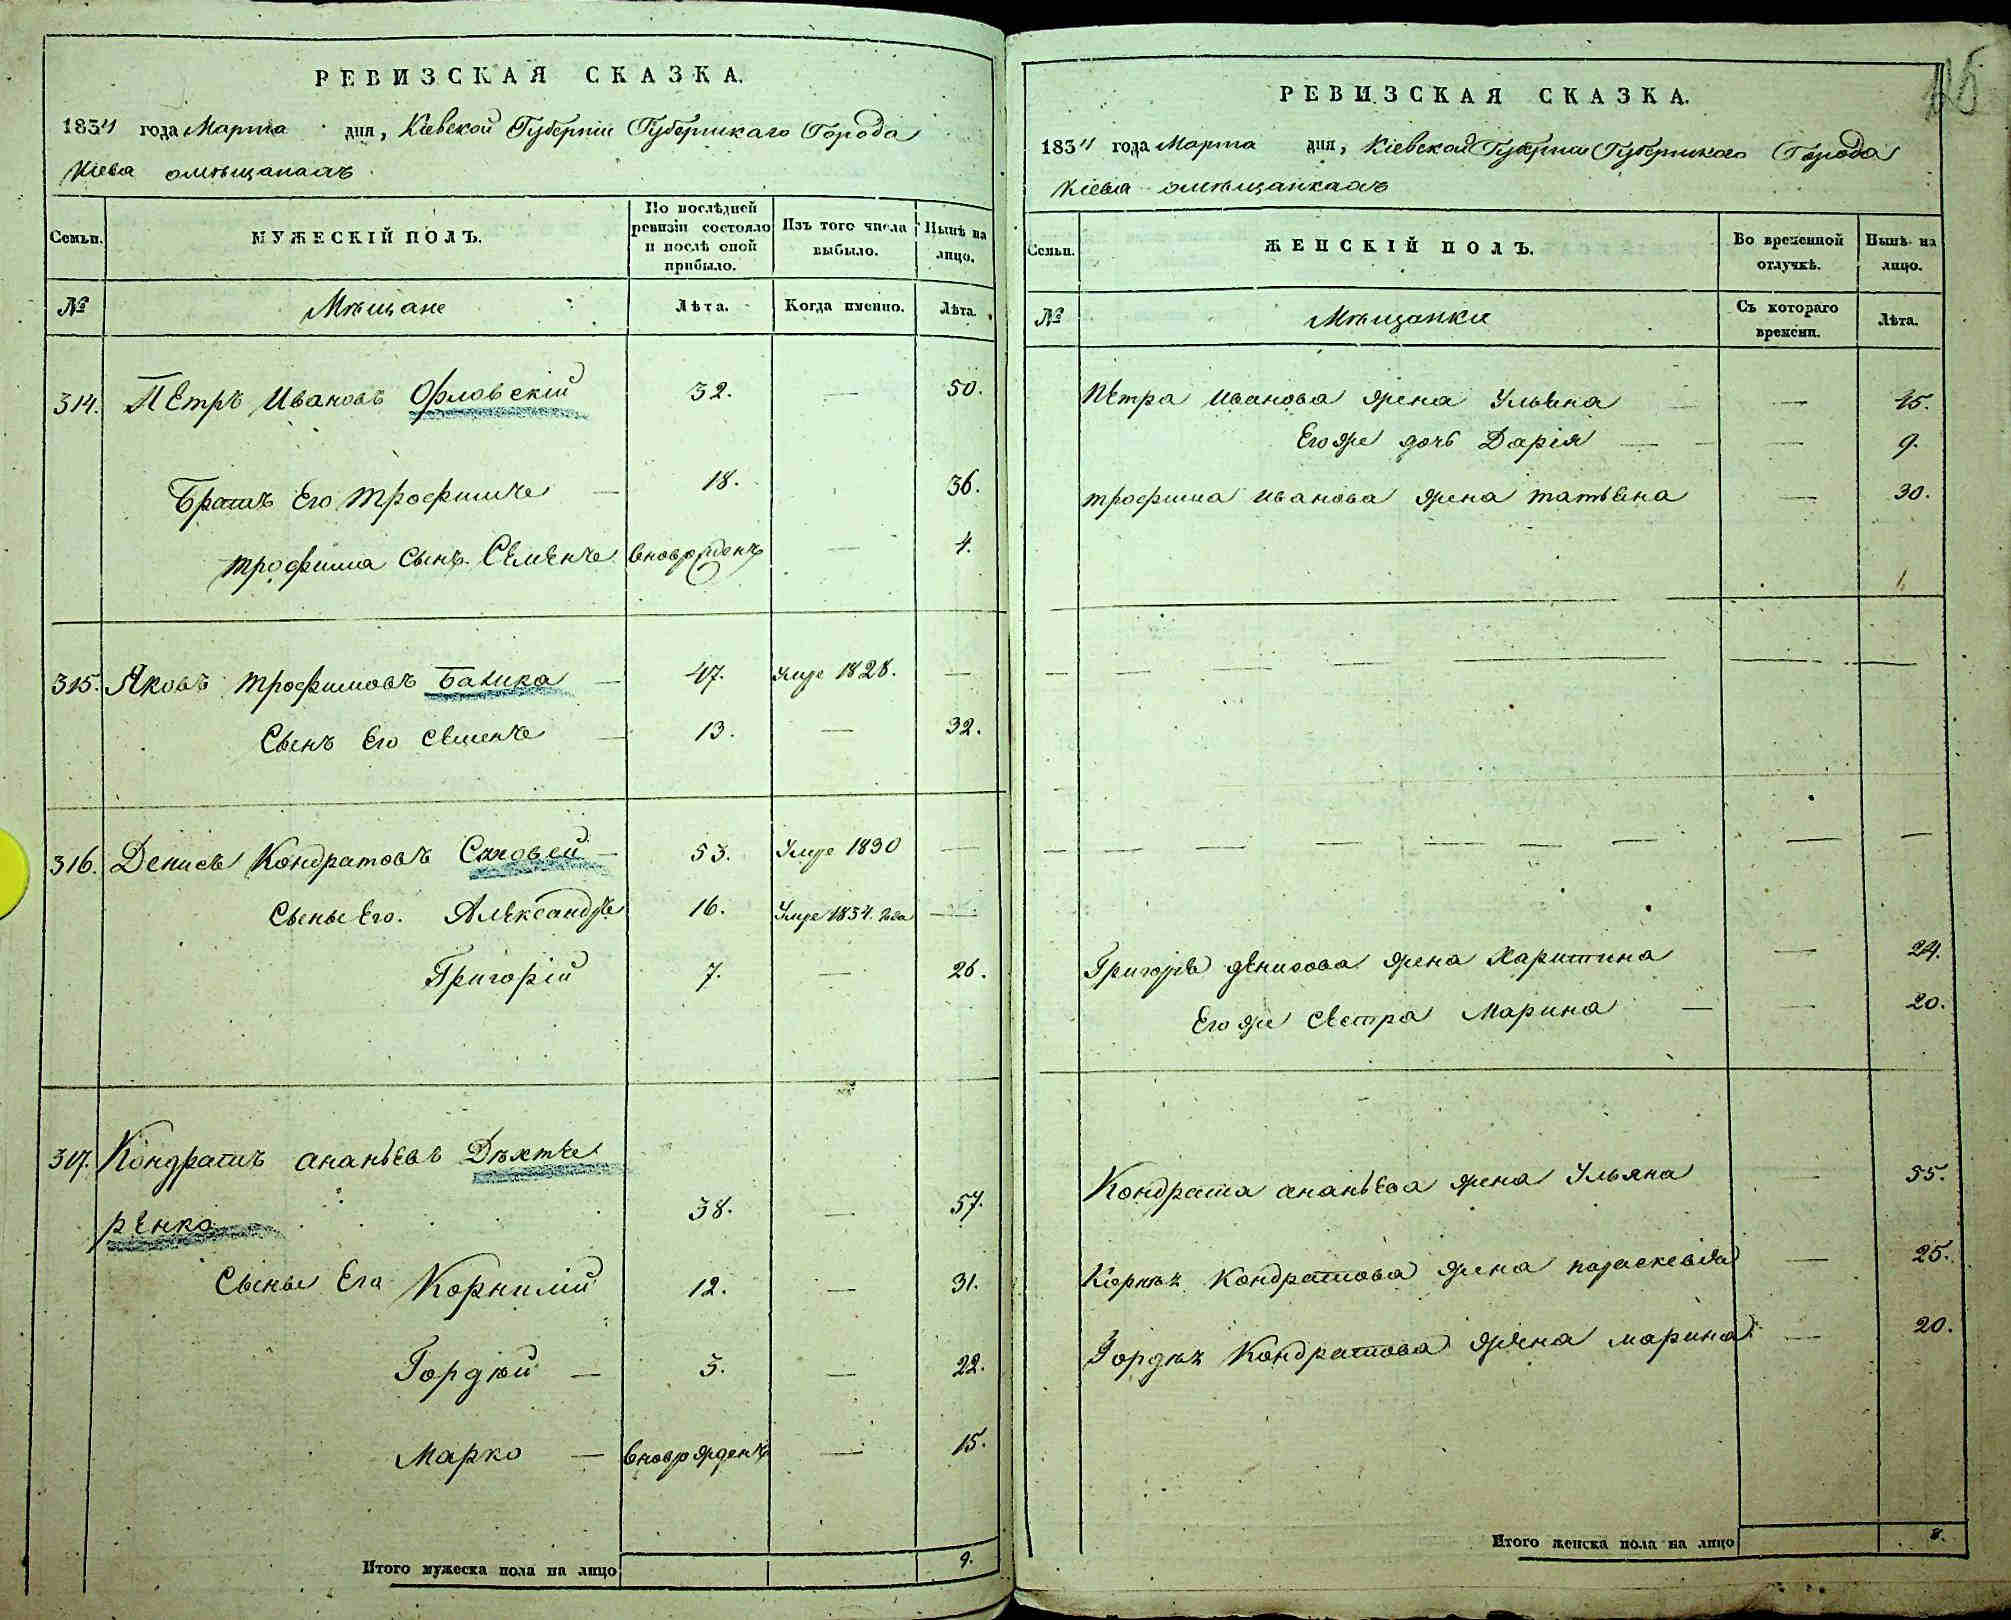 РЕВИЗСКАЯ СКАЗКА.
1834 года Марта дня, Кіевской Губерніи Губернскаго Города
Кіева омѣщанахъ
Семьи.
МУЖЕСКІЙ ПОЛЪ.
По послѣдней ревизіи состояло и послѣ оной прибыло.
Изъ того числа выбыло.
Нынѣ на лицо.
№
Мѣщане
Лѣта.
Когда именно.
Лѣта.
314. Петръ Ивановъ Орловскій 32. — 50.
Братъ Его трофимъ — 18. 36.
трофима Сынъ Семенъ вноврожденъ — 4.
315. Яковъ трофимовъ — 47. Умре 1828. —
Сынъ Его семенъ — 13. — 32.
316. Денисъ Кондратовъ — 53. Умре 1830 —
Сыны Его. Александръ 16. Умре 1834. года —
Григорій 7. — 26.
317. Кондратъ ананьевъ Дѣхтѣ
ренко 38. — 57.
Сыны Его Корнилій 12. — 31.
Гордѣй — 3. — 22.
Марко — вноврожденъ — 15.
Итого мужеска пола на лицо 9.
РЕВИЗСКАЯ СКАЗКА.
1834 года Марта дня, Кіевской Губерніи Губернскаго Города
Кіева омѣщанкахъ
Семьи.
ЖЕНСКІЙ ПОЛЪ.
Во временной отлучкѣ.
Нынѣ на лицо.
№
Мѣщанки
Съ котораго времени.
Лѣта.
Петра Иванова жена Ульяна — 45.
Егоже дочь Дарія — — 9.
трофима Иванова жена татьяна — 30.
Григорія денисова жена Харитина — 24.
Егоже сестра Марина — — 20.
Кондрата ананьева жена Ульяна — 55.
Корнѣя Кондратова жена параскевія — 25.
Гордѣя Кондратова жена марина — 20.
Итого женска пола на лицо 8.